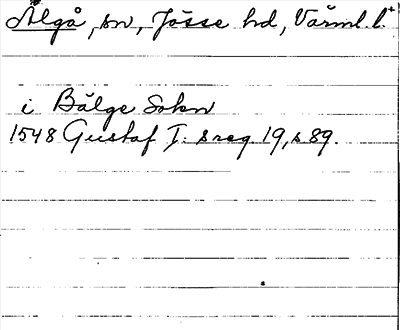 Älgå, sn, Jösse hd, Värml. l.+
i Bälge Sokn
1548 Gustaf I: s reg 19, s 89.